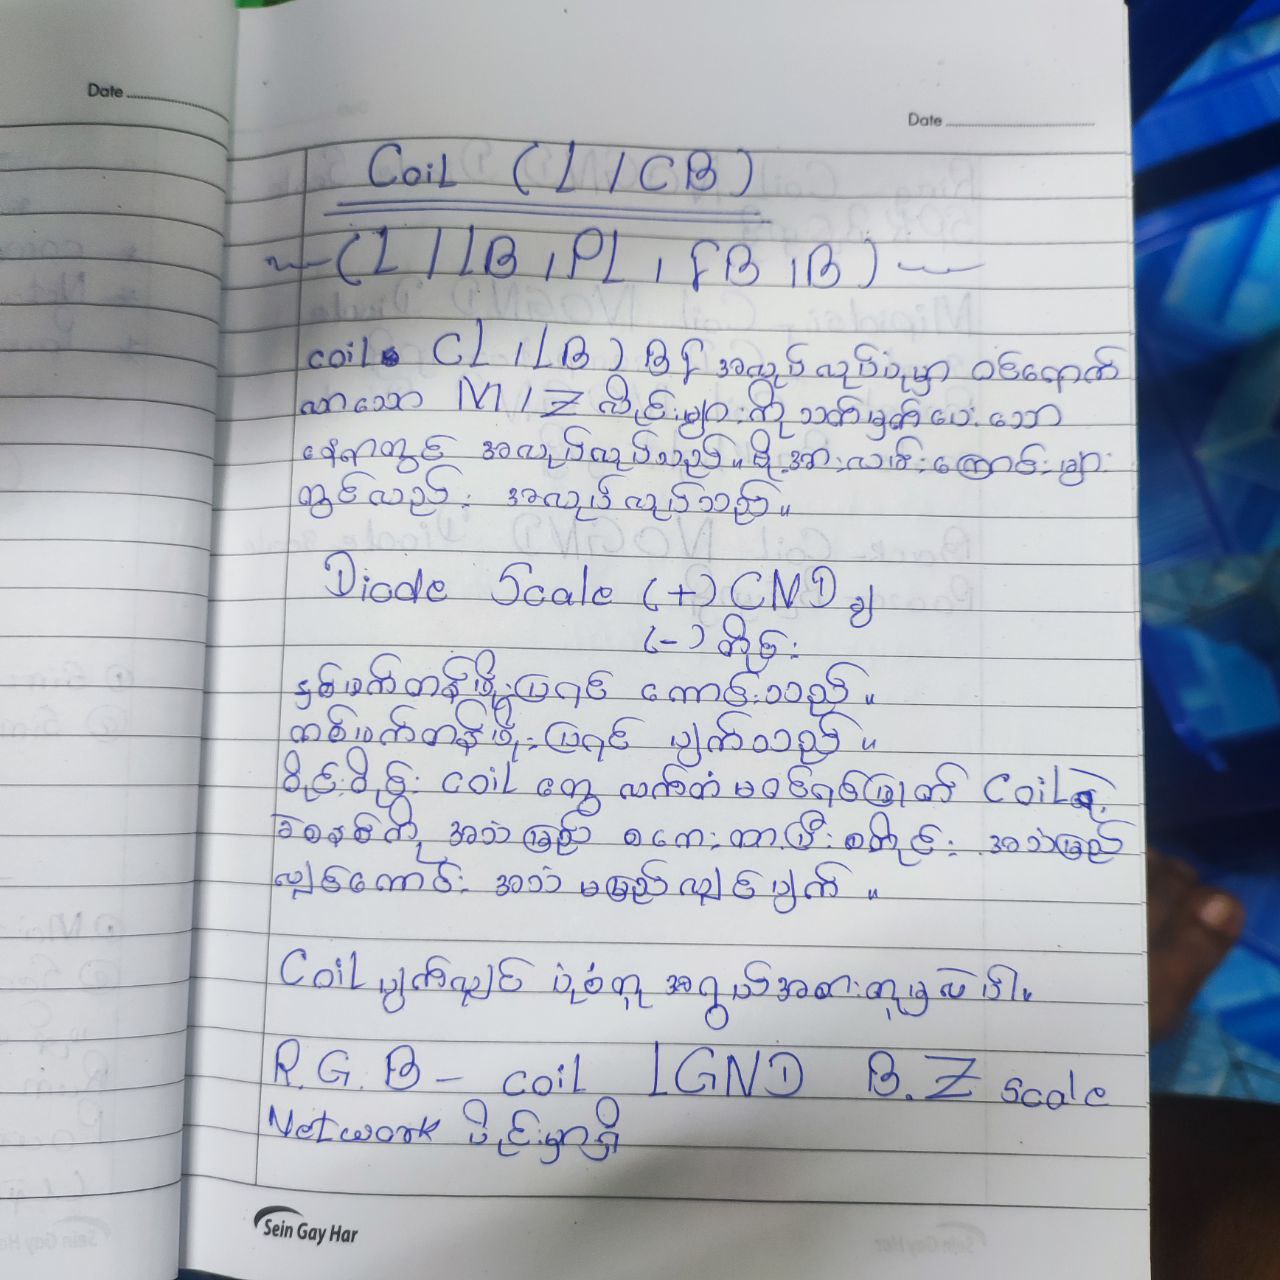 Date
Date
Coil (L / CB)
(L / LB , PL , FB , B)
coil CL , LB ) BF အလုပ်လုပ်ပုံမှာ ဝင်ရောက်
လာသော M / Z လှိုင်းများကို သတ်မှတ်ပေးသော
နေရာတွင် အလုပ်လုပ်သည်။ ဗို့အားလမ်းကြောင်းများ
တွင်လည်း အလုပ်လုပ်သည်။
Diode Scale (+) GND ချ
(-) တိုင်း
နှစ်ဖက်တန်ဖိုးပြရင် ကောင်းသည်။
တစ်ဖက်တန်ဖိုးပြရင် ပျက်သည်။
ဝိုင်းဝိုင်း coil တွေ လက်တံမဝင်ရင်ဖြုတ် Coilရဲ့
အသံမြည် စကေးထားပြီး တိုင်း အသံမြည်
လျှင်ကောင်း အသံ မမြည်လျှင်ပျက်။
Coil ပျက်လျှင် ပုံစံတူ အရွယ်အစားတူမှလဲပါ။
R.G.B - coil LGND B.Z Scale
Network ပိုင်းမှာရှိ
Sein Gay Har